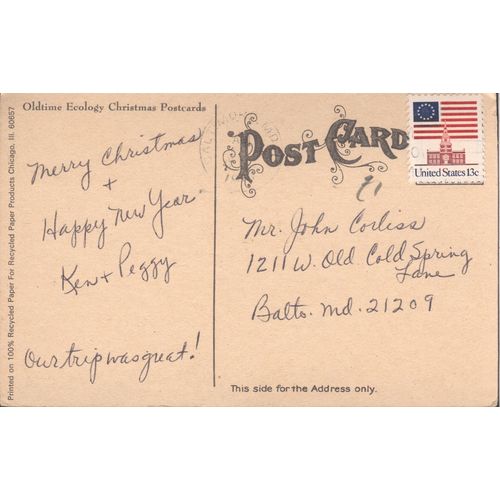 Oldtime Ecology Christmas Postcards
Merry Christmas
+
Happy New Year
Ken + Peggy
Our trip was great!
Printed on 100% Recycled Paper For Recycled Paper Products Chicago, Ill. 60657
POST CARD
United States 13c
Mr. John Corliss
1211 W. Old Cold Spring
Lane
Balto. Md. 21209
This side for the Address only.